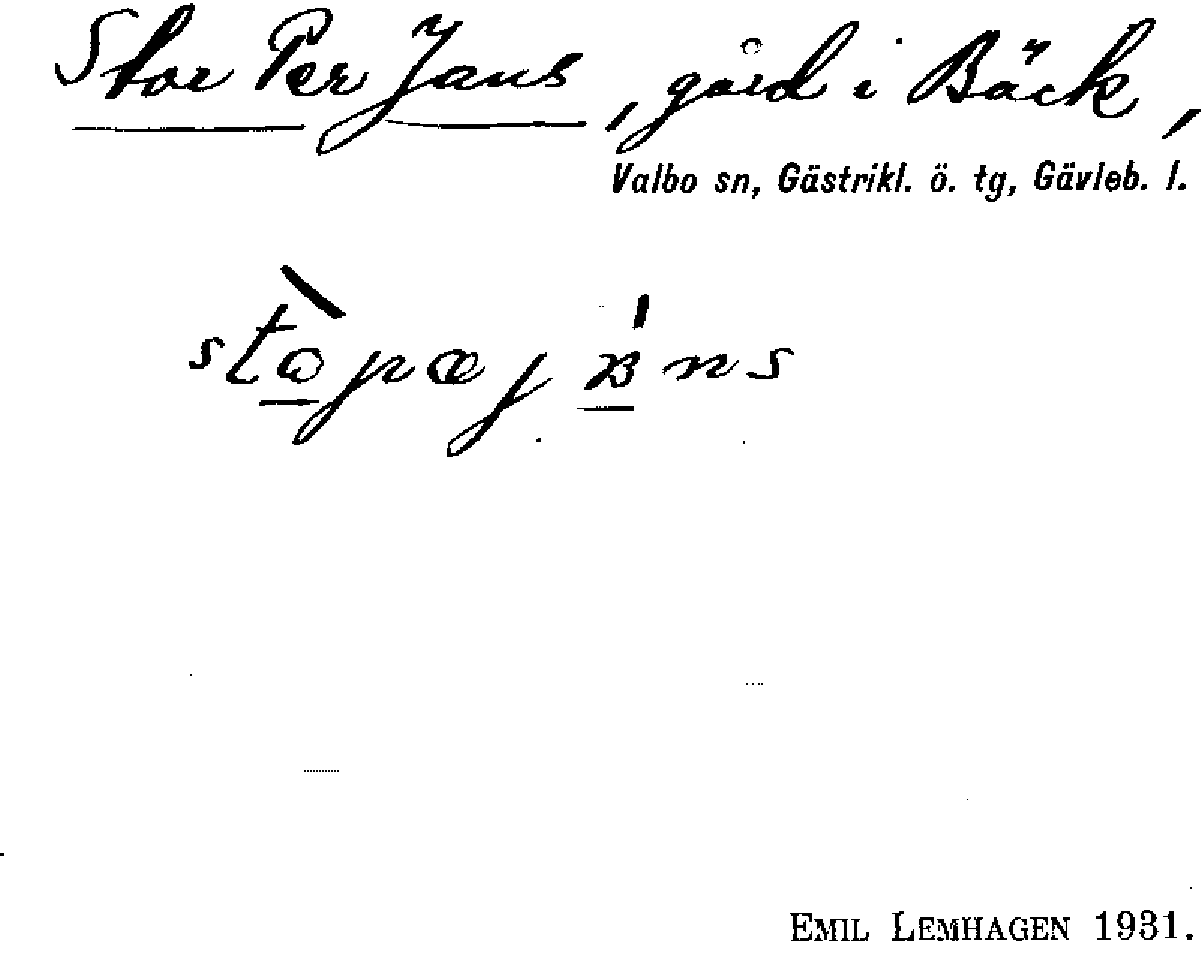 Stor Per Jans, gård i Bäck,
Valbo sn, Gästrikl. ö. tg, Gävleb. l.
EMIL LEMHAGEN 1931.